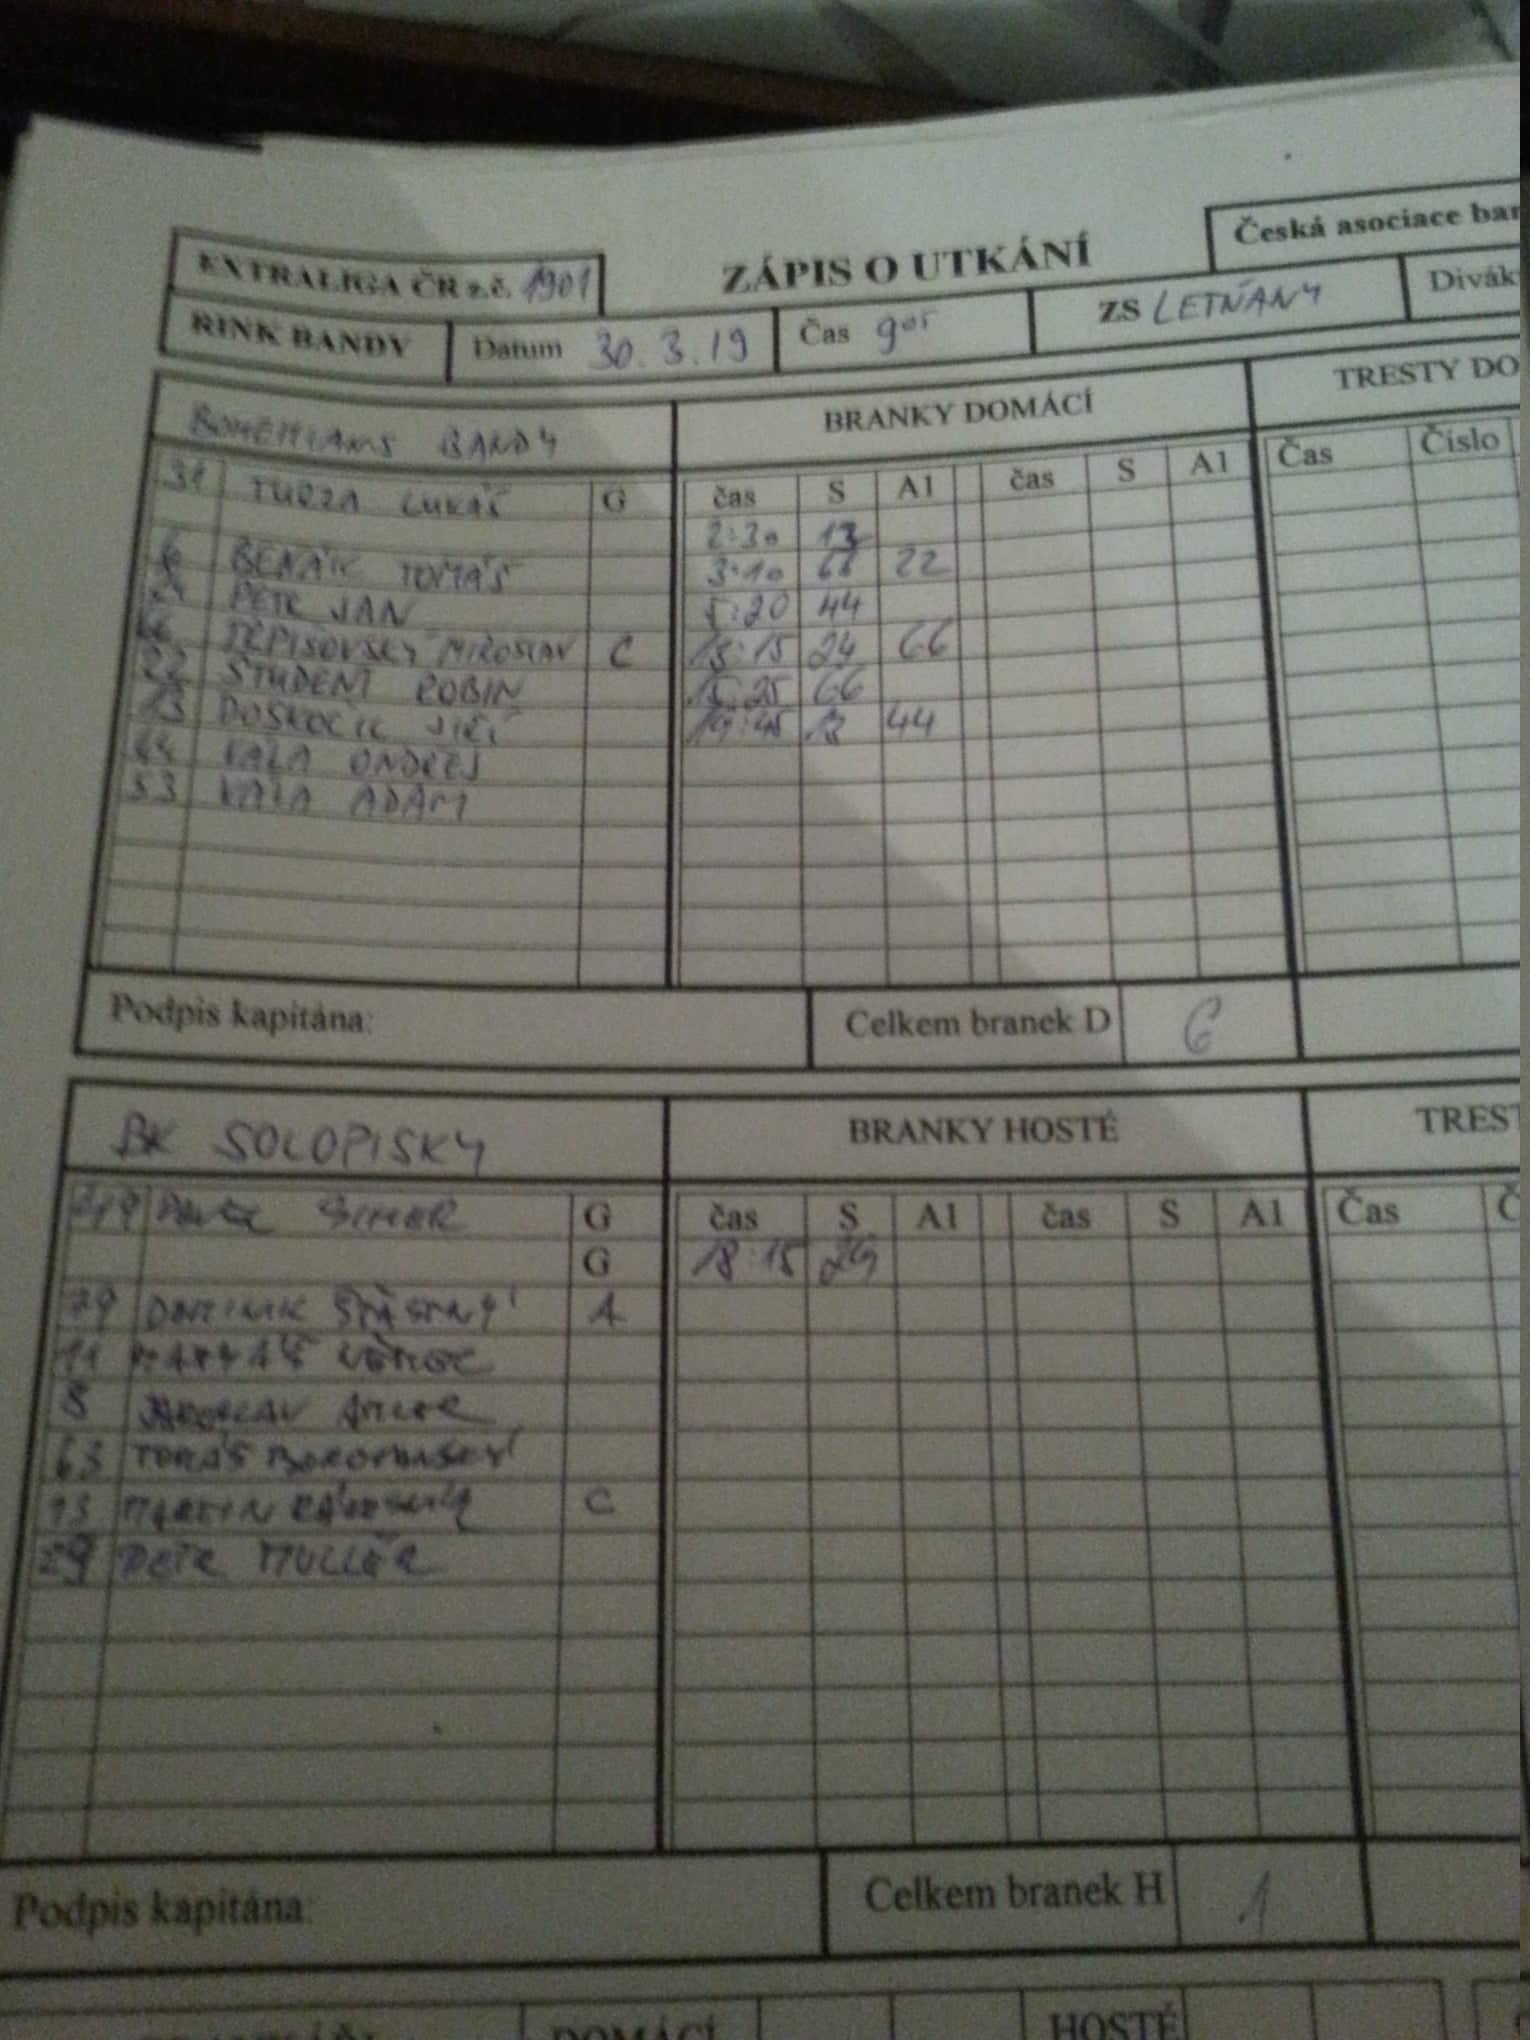 Česká asociace
EXTRALIGA ČR z.č. 1901
ZÁPIS O UTKÁNÍ
RINK BANDY Datum 30.3.19 Čas 9⁰⁵ ZS LETŇANY
BOHEMIANS BANDY BRANKY DOMÁCÍ TRESTY DO
TURZA LUKÁŠ G čas S A1 čas S A1 Čas Číslo
2:30 13
6 BENÁK TOMÁŠ 3:10 22
24 PETR JAN 5:20 44
66 MIROSLAV C 15:15 24 66
22 STUDENT ROBIN 15:25 66
13 DOSKOČIL JIŘÍ 19:45 13 44
44 VALA ONDŘEJ
53 VALA ADAM
Podpis kapitána: Celkem branek D 6
BK SOLOPISKY BRANKY HOSTÉ
G čas S A1 čas S A1 Čas
G 18:15 29
79 DOMINIK ŠŤASTNÝ A
11
8 JAROSLAV
63 TOMÁŠ
13 MARTIN C
29 PETR MULLER
Podpis kapitána: Celkem branek H 1
DOMÁCÍ HOSTÉ